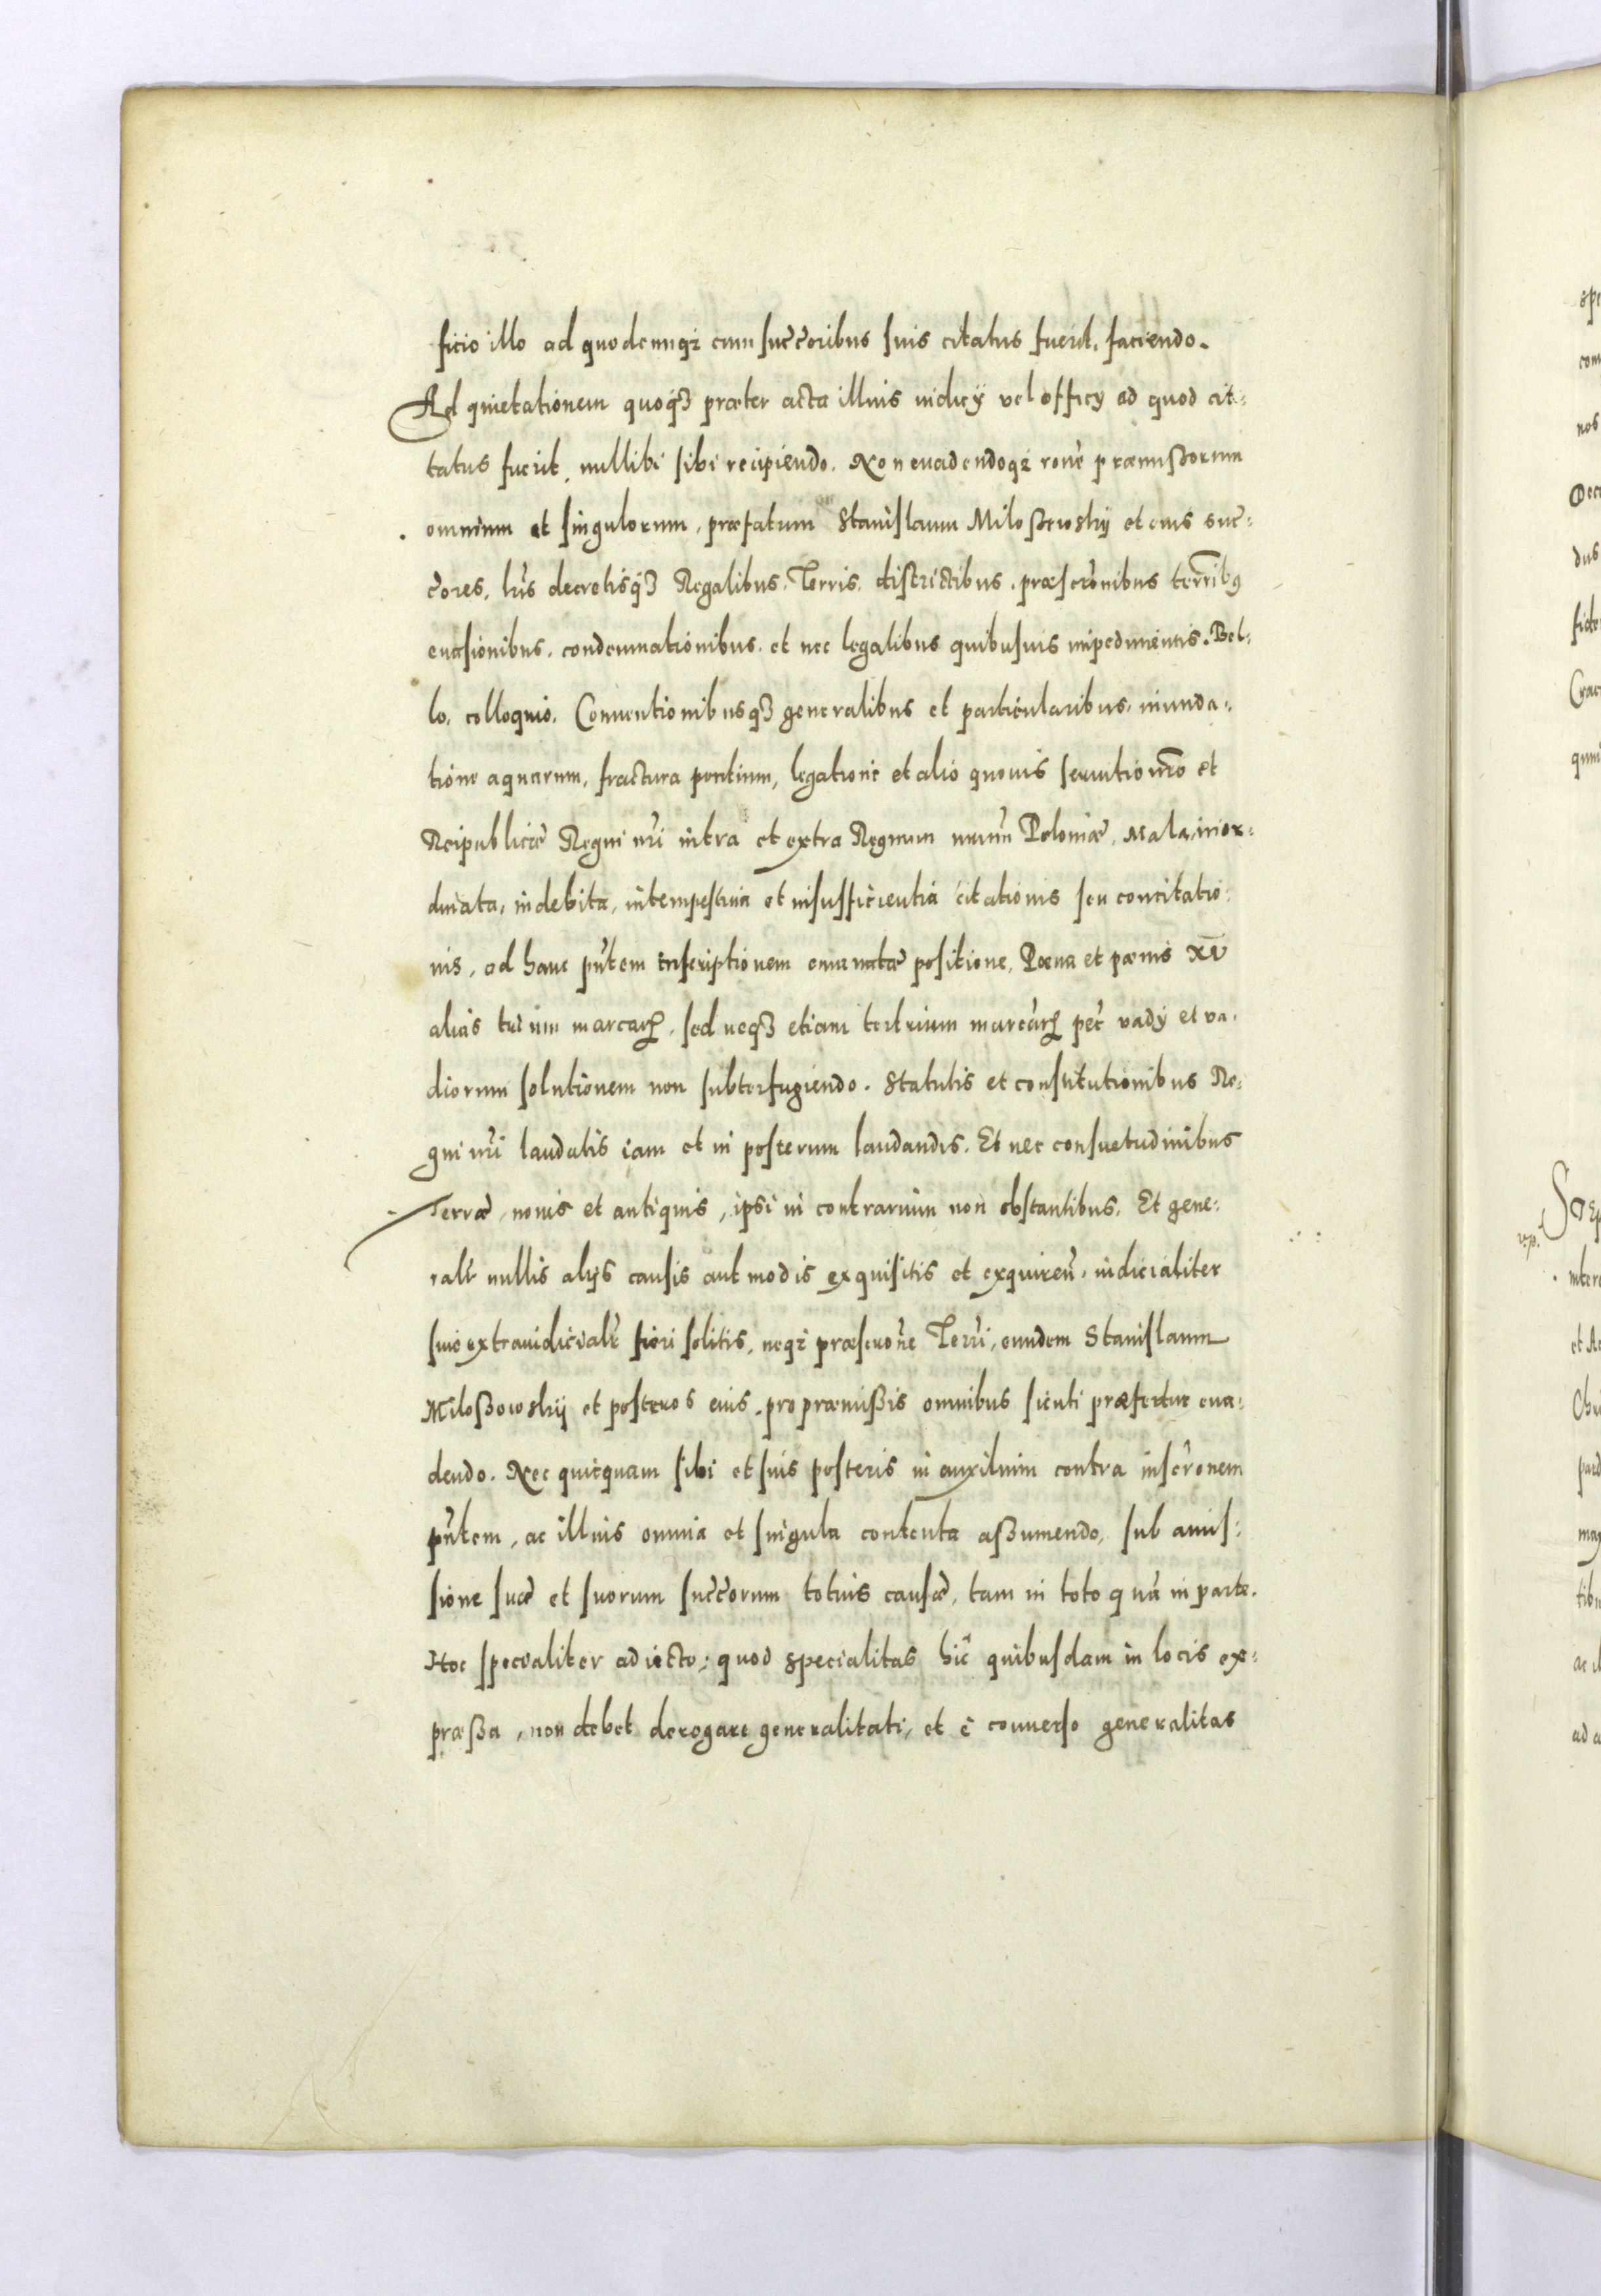 ficio illo ad quodcunqꝫ cum succ̃oribus suis citatus fuerit, faciendo.
Ad quietationem quoqꝫ præter acta illius iudicÿ vel officÿ ad quod cit:
tatus fuerit, nullibi sibi recipiendo. Non euadendoqꝫ rõne præmissorum
omnium et singulorum, præfatum Stanislaum Miloßowskÿ et eius suc̃:
c̃ores, lr̃is decretisqꝫ Regalibus, Terris, districtibus, præscr̃onibus terr̃ibꝰ
euasionibus, condemnationibus, et nec legalibus quibusuis impedimentis. Bel:
lo, colloquio, Conuentionibusqꝫ generalibus et particularibus, inunda:
tione aquarum, fractura pontium, legatione et alio quouis seruitio nr̃o et
Reipublicæ Regni nr̃i intra et extra Regnum nr̃um Poloniæ, Mala, inor:
dinata, indebita, intempestiua et insufficientia citationis seu concitatio:
nis, ad hanc pñtem inscriptionem emanatæ positione, Pœna et pœnis XV
alias trium marcarꝝ, sed neqꝫ etiam tertrium marcarꝝ pec̃ vadÿ et va:
diorum solutionem non subterfugiendo. Statutis et constitutionibus Re:
gni nr̃i laudatis iam et in posterum laudandis. Et nec consuetudinibus
Terræ, nouis et antiquis, ipsi in contrarium non obstantibus. Et gene:
ralr̃ nullis alÿs causis aut modis exquisitis et exquireñ, iudicialiter
siue extraiudicialr̃ fieri solitis, neqꝫ præscr̃one Terr̃i, eundem Stanislaum
Miloßowskÿ et posteros eius, pro præmißis omnibus sicuti præfertur eua:
dendo. Nec quicquam sibi et suis posteris in auxilium contra inscr̃onem
pñtem, ac illius omnia et singula contenta aßumendo, sub amis:
sione suæ et suorum succ̃orum totius causæ, tam in toto quã in parte.
Hoc specialiter adiecto; quod specialitas hic quibusdam in locis ex:
præßa, non debet derogare generalitati, et è conuerso generalitas